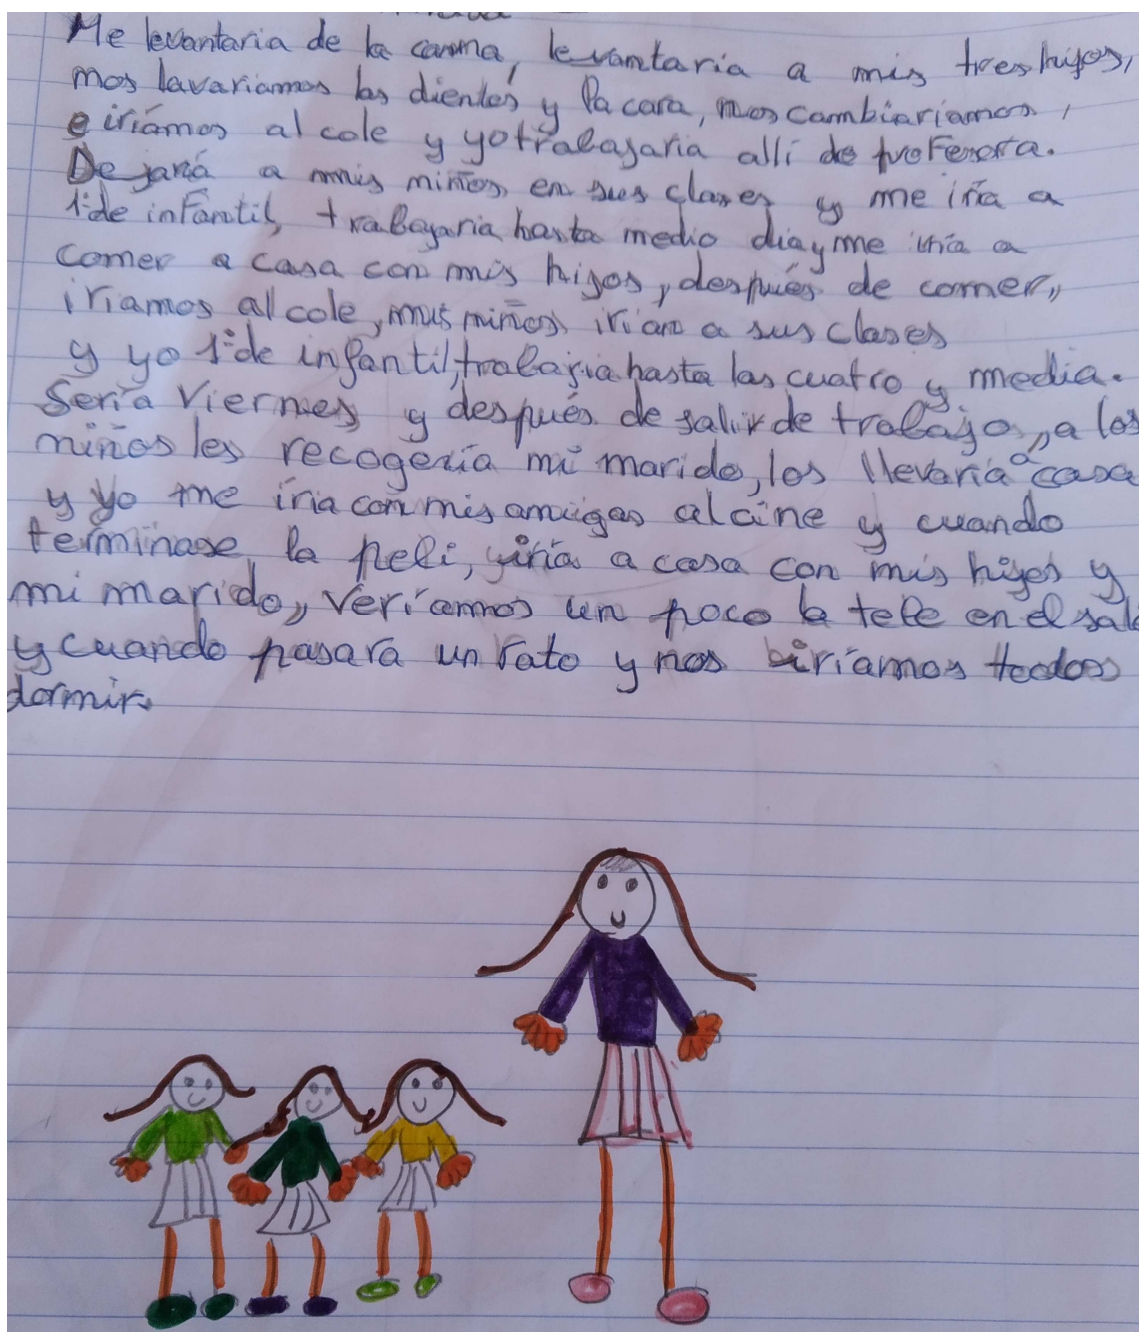 Me levantaria de la cama, levantaria a mis tres hijos,
nos lavariamos los dientes y la cara, nos cambiariamos,
e iríamos al cole y yo trabajaria allí de profesora.
Dejaría a mis niños en sus clases y me iría a
1º de infantil, trabajaria hasta medio dia y me iria a
comer a casa con mis hijos, después de comer,
iriamos al cole, mis niños irian a sus clases
y yo 1º de infantil, trabajria hasta las cuatro y media.
Sería Viernes y después de salir de trabajo, a los
niños les recogería mi marido, los llevaría a casa
y yo me iria con mis amigas al cine y cuando
terminase la peli, iría a casa con mis hijos y
mi marido, veríamos un poco la tele en el sal
y cuando pasara un rato y nos iríamos todos
dormir.